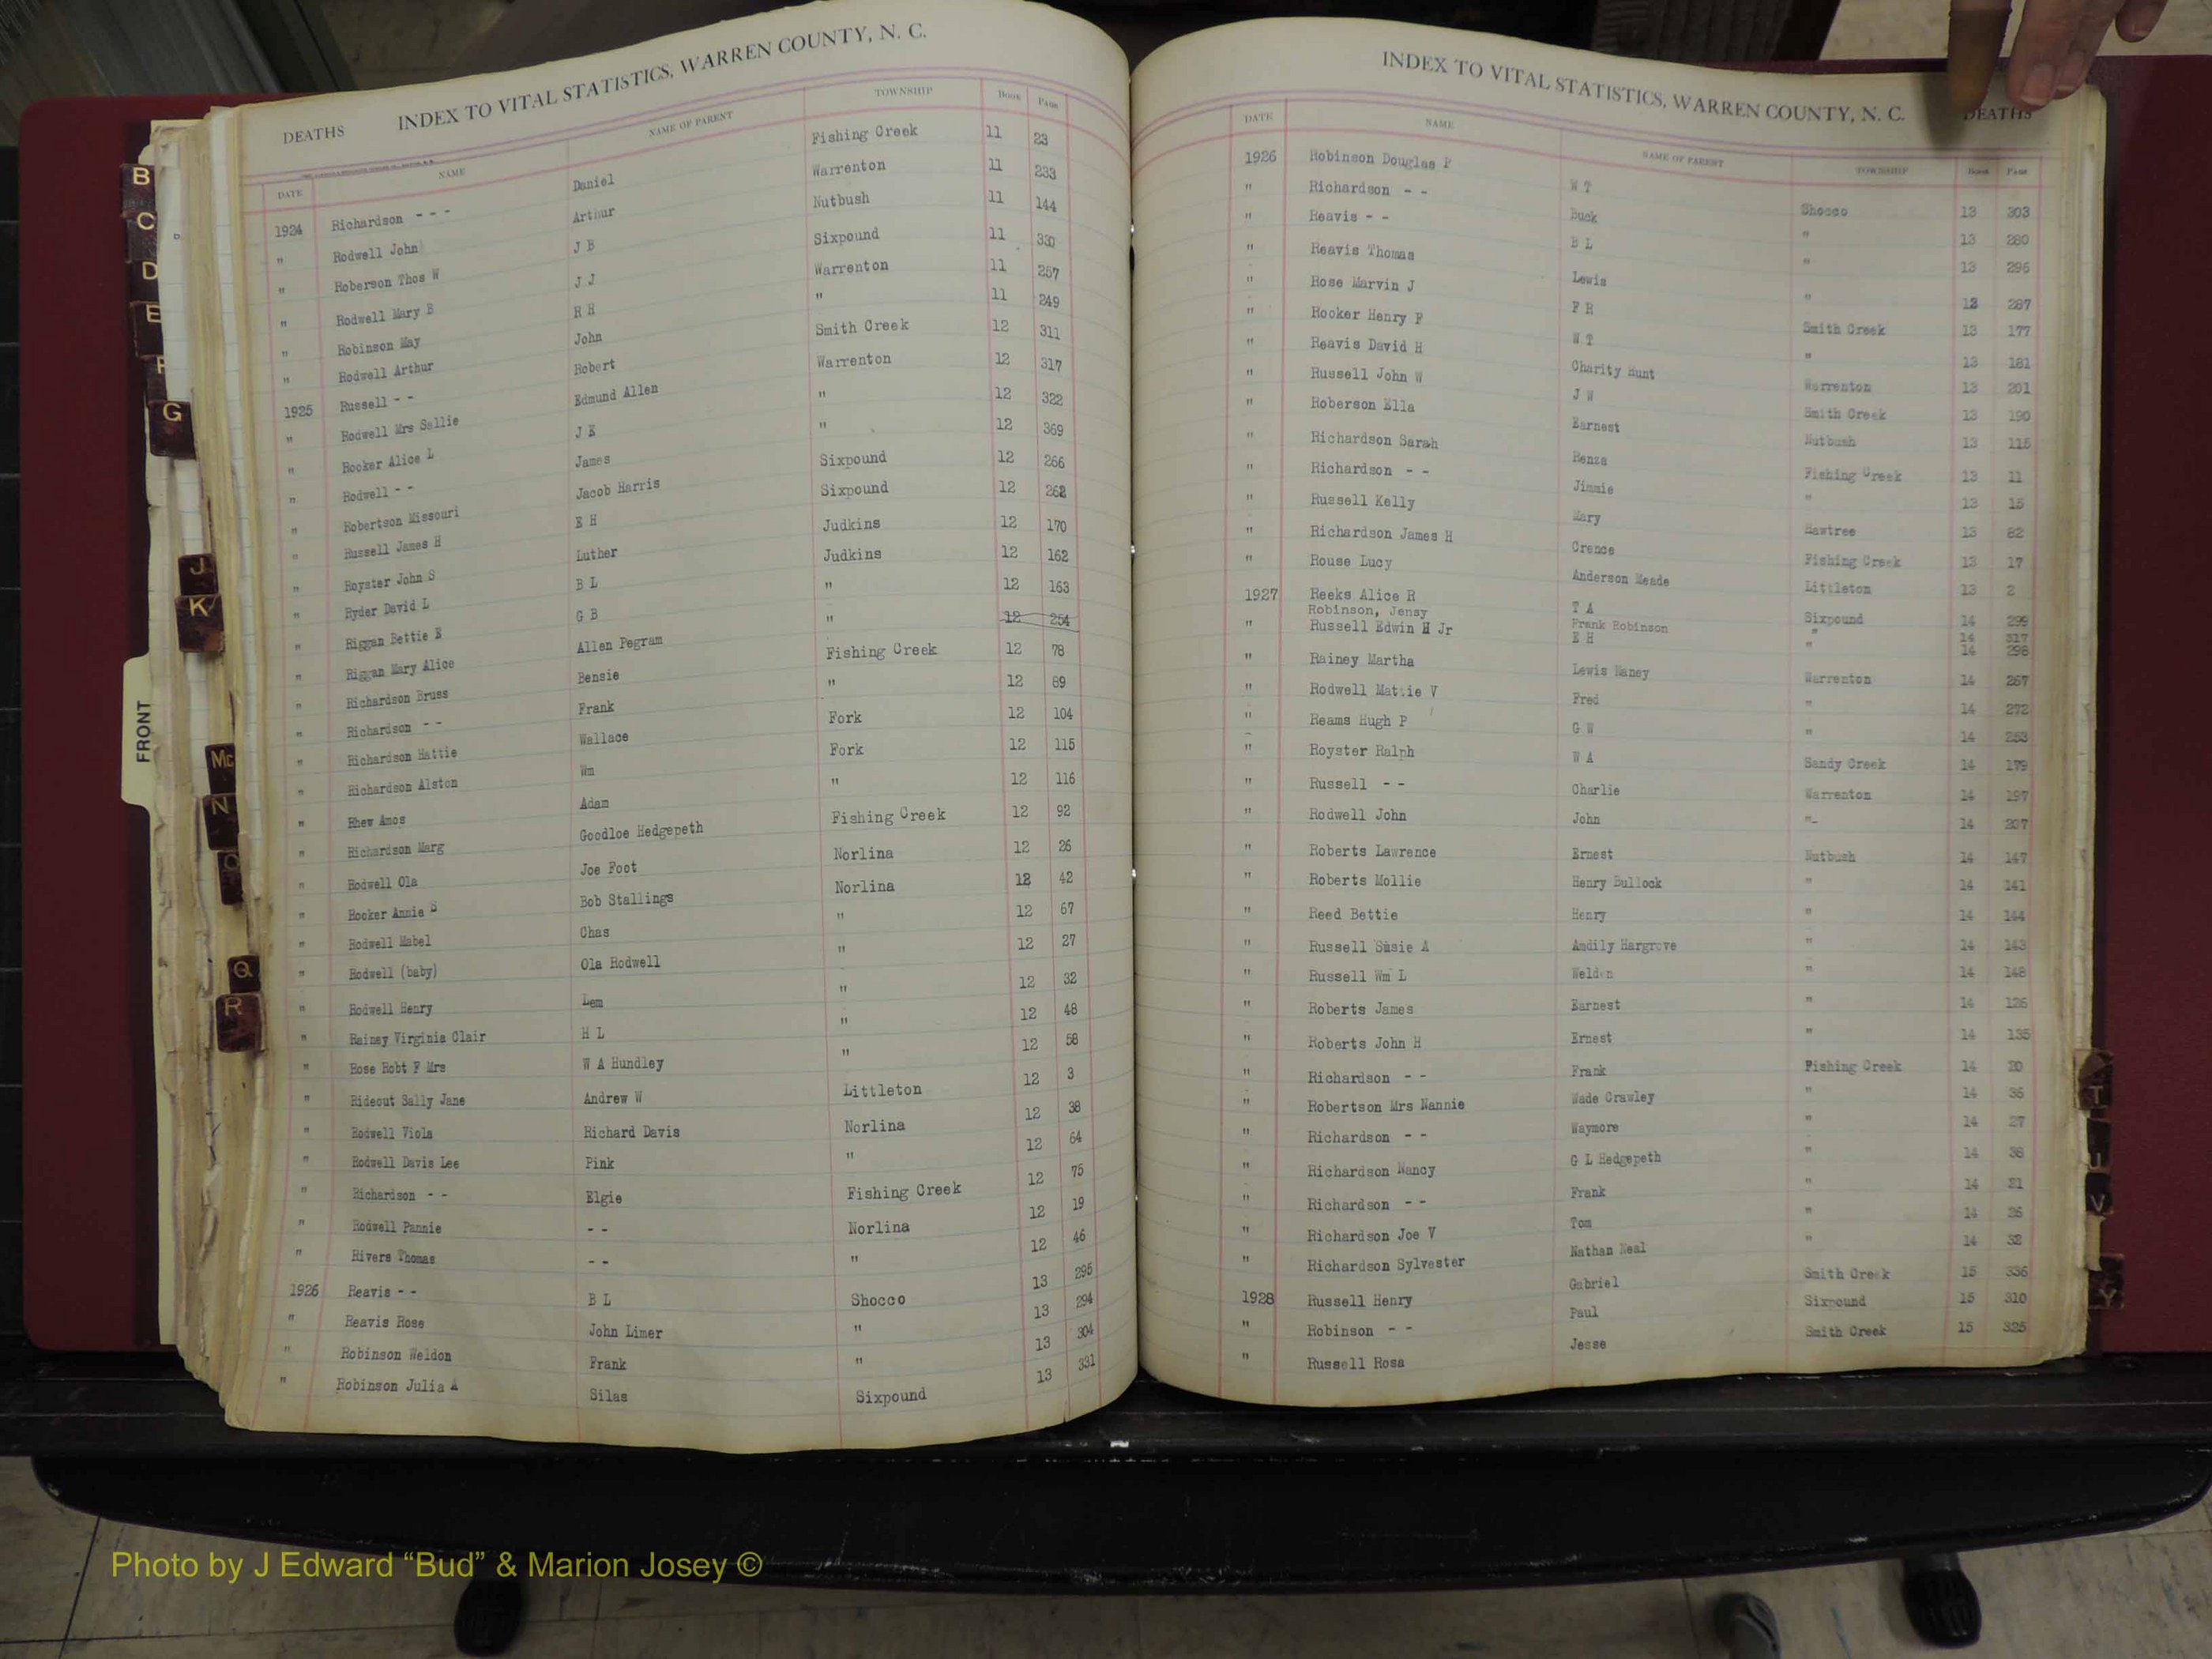 DEATHS INDEX TO VITAL STATISTICS, WARREN COUNTY, N. C.
DATE NAME NAME OF PARENT TOWNSHIP Book Page
1924 Richardson - - - Daniel Fishing Creek 11 23
" Rodwell John Arthur Warrenton 11 233
" Roberson Thos W J B Nutbush 11 144
" Rodwell Mary B J J Sixpound 11 330
" Robinson May R H Warrenton 11 257
" Rodwell Arthur John " 11 249
1925 Russell - - Robert Smith Creek 12 311
" Rodwell Mrs Sallie Edmund Allen Warrenton 12 317
" Rooker Alice L J E " 12 322
" Rodwell - - James " 12 369
" Robertson Missouri Jacob Harris Sixpound 12 266
" Russell James H E H Sixpound 12 262
" Royster John S Luther Judkins 12 170
" Ryder David L B L Judkins 12 162
" Riggan Bettie E G B " 12 163
" Riggan Mary Alice Allen Pegram " 12 254
" Richardson Bruss Bensie Fishing Creek 12 78
" Richardson - - Frank " 12 89
" Richardson Hattie Wallace Fork 12 104
" Richardson Alston Wm Fork 12 115
" Rhew Amos Adam " 12 116
" Richardson Marg Goodloe Hedgepeth Fishing Creek 12 92
" Rodwell Ola Joe Foot Norlina 12 26
" Rooker Annie S Bob Stallings Norlina 12 42
" Rodwell Mabel Chas " 12 67
" Rodwell (baby) Ola Rodwell " 12 27
" Rodwell Henry Lem " 12 32
" Rainey Virginia Clair H L " 12 48
" Rose Robt F Mrs W A Hundley " 12 58
" Rideout Sally Jane Andrew W Littleton 12 3
" Rodwell Viola Richard Davis Norlina 12 38
" Rodwell Davis Lee Pink " 12 64
" Richardson - - Elgie Fishing Creek 12 75
" Rodwell Pannie - - Norlina 12 19
" Rivers Thomas - - " 12 46
1926 Reavis - - B L Shocco 13 295
" Reavis Rose John Limer " 13 294
" Robinson Weldon Frank " 13 304
" Robinson Julia A Silas Sixpound 13 331
INDEX TO VITAL STATISTICS, WARREN COUNTY, N. C. DEATHS
DATE NAME NAME OF PARENT TOWNSHIP Book Page
1926 Robinson Douglas P W T Shocco 13 303
" Richardson - - Buck " 13 280
" Reavis - - B L " 13 296
" Reavis Thomas Lewis " 13 287
" Rose Marvin J F R Smith Creek 13 177
" Rooker Henry F W T " 13 181
" Reavis David H Charity Hunt Warrenton 13 201
" Russell John W J W Smith Creek 13 190
" Roberson Ella Earnest Nutbush 13 115
" Richardson Sarah Renza Fishing Creek 13 11
" Richardson - - Jimmie " 13 15
" Russell Kelly Mary Hawtree 13 82
" Richardson James H Crence Fishing Creek 13 17
" Rouse Lucy Anderson Meade Littleton 13 2
1927 Reeks Alice R T A Sixpound 14 299
Robinson, Jensy Frank Robinson " 14 317
" Russell Edwin H Jr E H " 14 298
" Rainey Martha Lewis Naney Warrenton 14 267
" Rodwell Mattie V Fred " 14 272
" Reams Hugh P G W " 14 253
" Royster Ralph W A Sandy Creek 14 179
" Russell - - Charlie Warrenton 14 197
" Rodwell John John " 14 207
" Roberts Lawrence Ernest Nutbush 14 147
" Roberts Mollie Henry Bullock " 14 141
" Reed Bettie Henry " 14 144
" Russell Susie A Amdily Hargrove " 14 143
" Russell Wm L Weldon " 14 148
" Roberts James Earnest " 14 126
" Roberts John H Ernest " 14 135
" Richardson - - Frank Fishing Creek 14 20
" Robertson Mrs Nannie Wade Crawley " 14 35
" Richardson - - Waymore " 14 27
" Richardson Nancy G L Hedgepeth " 14 38
" Richardson - - Frank " 14 21
" Richardson Joe V Tom " 14 26
" Richardson Sylvester Nathan Neal " 14 32
1928 Russell Henry Gabriel Smith Creek 15 336
" Robinson - - Paul Sixpound 15 310
" Russell Rosa Jesse Smith Creek 15 325
B
C
D
E
F
G
J
K
Mc
N
O
Q
R
FRONT
T
U
V
Y
Photo by J Edward “Bud” & Marion Josey ©